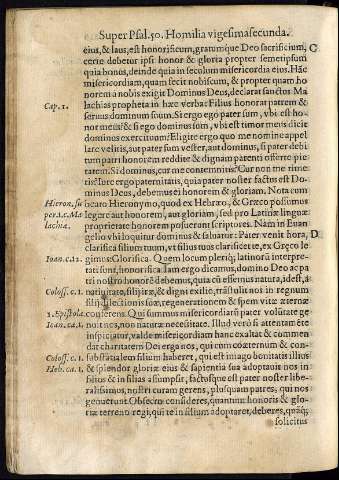 Super Psal. 50. Homilia vigesimasecunda.
eius, & laus, est honorificum, gratumque Deo sacrificium, C
certe debetur ipsi honor & gloria propter semetipsum
quia bonus, deinde quia in seculum misericordia eius. Hāc
misericordiam, quam fecit nobiscum, & propter quam ho
norem à nobis exigit Dominus Deus, declarat sanctus Ma
Cap. 1. lachias propheta in hæc verba: Filius honorat patrem &
seruus dominum suum. Si ergo ego pater sum, vbi est ho-
nor meus? & si ego dominus sum, vbi est timor meus dicit
dominus exercituum? Eligite ergo quo me nomine appel
lare velitis, aut pater sum vester, aut dominus, si pater debi
tum patri honorem reddite & dignam parenti offerte pie
tatem. Si dominus, cur me contemnitis? Cur non me time-
tis? Iure ergo paternitatis, quia pater noster factus est Do-
minus Deus, debemus ei honorem & gloriam. Nota cum
Hieron. su gloriam sancto Hieronymo, quod ex Hebræo, & Græco possumus
per 1. c. Ma legere aut honorem, aut gloriam, sed pro Latinæ linguæ
lachiæ. proprietate honorem posuerunt scriptores. Nam in Euan
gelio vbi loquitur dominus & saluator: Pater venit hora, D
clarifica filium tuum, vt filius tuus clarificet te, ex Græco le
Ioan. c. 12. gimus: Glorifica. Quem locum pleriq; latinorū interpre-
tati sunt, honorifica. Iam ergo dicamus, domino Deo ac pa
tri nostro honorē debemus, quia cū essemus natura, idest, à
Coloss. c. 1. natiuitate, filij iræ, & digni exilio, trāstulit nos in regnum
filij dilectionis suæ, regenerationem & spem vitæ æternæ
1. Epistola conferens. Qui summus misericordiarū pater volūtate ge
Ioan. ca. 1. nuit nos, non naturæ necessitate. Illud verò si attentamēte
inspiciatur, valde misericordiam hanc exaltat & commen
dat charitatem Dei erga nos, qui cum coæternum & con-
Coloss. c. 1. substātialem filium haberet, qui est imago bonitatis illius
Heb. ca. 1. & splendor gloriæ eius & sapientia sua adoptauit nos in
filios & in filias assumpsit, factusque est pater noster libe-
ralissimus, nostri curam gerens, plusquam patres, qui nos
genuerunt. Obsecro consideres, quantum honoris & glo-
riæ terreno regi, qui te in filium adoptaret, deberes, quāq;
solicitus